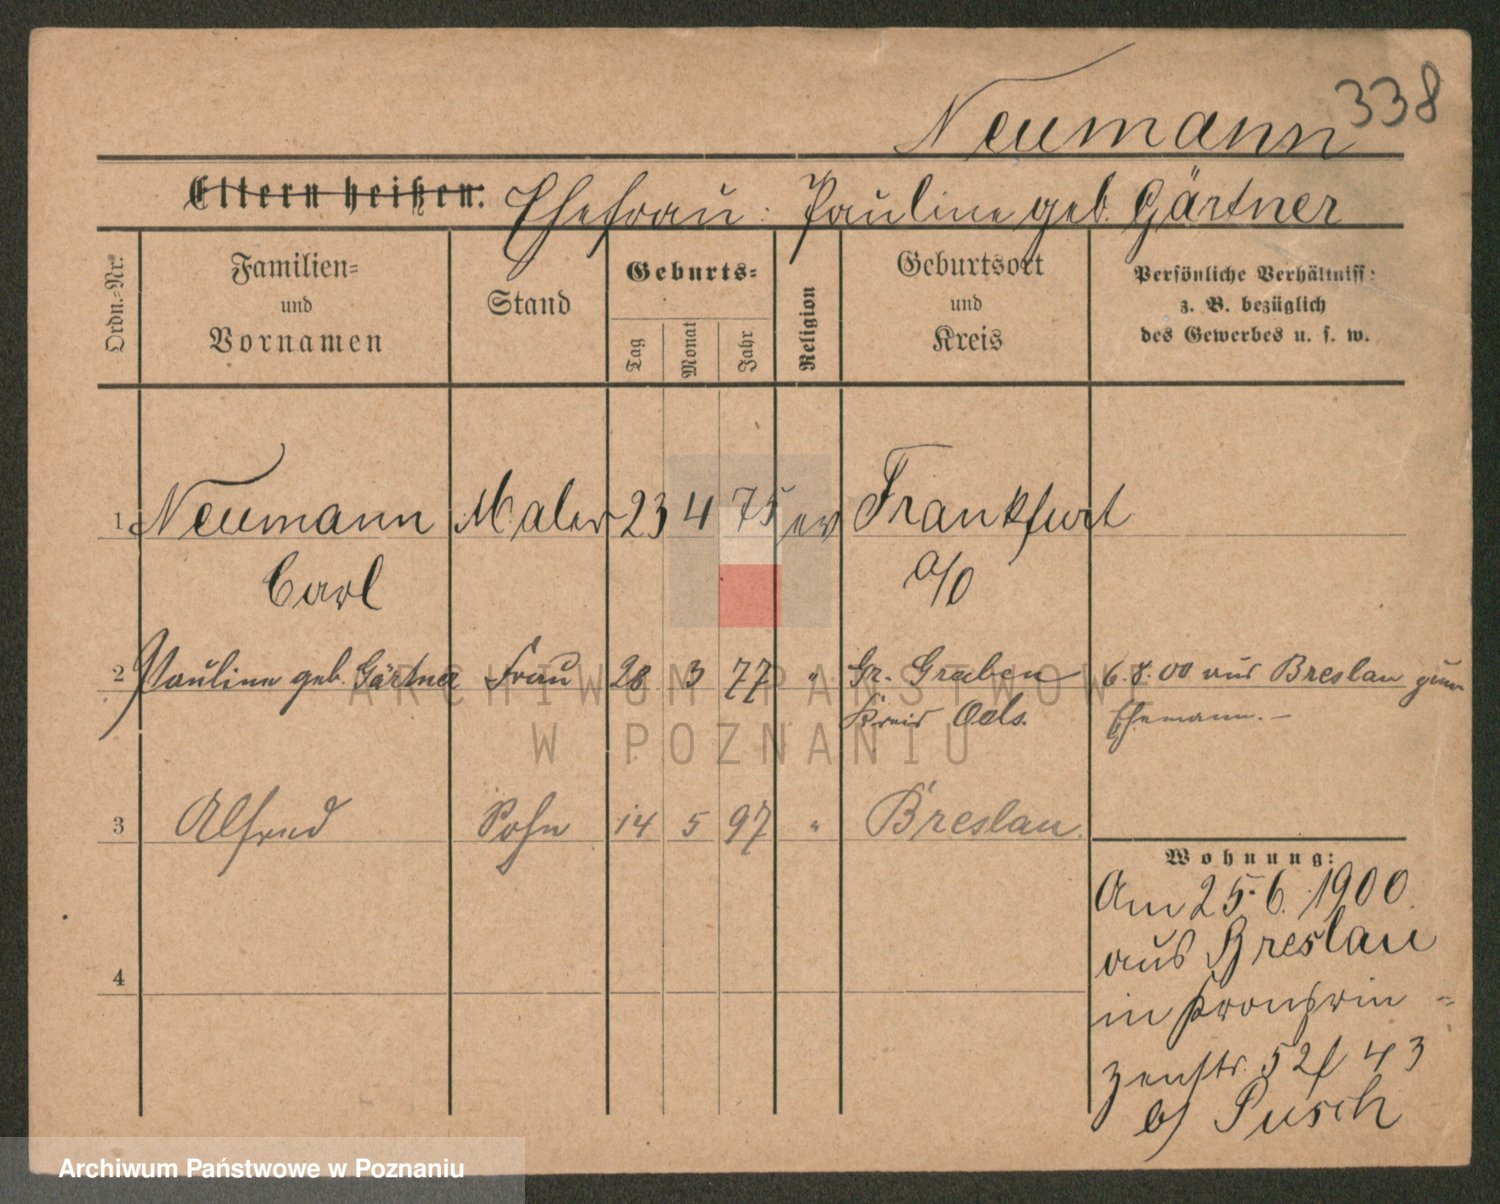 338
Neumann
Eltern heißen: Ehefrau: Pauline geb. Gärtner
Ordn.-Nr.
Familien-
und
Vornamen
Stand
Geburts-
Tag
Monat
Jahr
Religion
Geburtsort
und
Kreis
Persönliche Verhältniss:
z. B. bezüglich
des Gewerbes u. s. w.
1 Neumann Maler 23 4 75 ev Frankfurt
Carl a/O
2 Pauline geb. Gärtner Frau 28 3 77 " Gr. Graben 6. 8. 00 aus Breslau zum
Kreis Oels. Ehemann. –
3 Alfred Sohn 14 5 97 " Breslau.
Wohnung:
Am 25. 6. 1900.
aus Breslau
in Kronprin-
zenstr. 52/43
b/ Pusch
4
ARCHIWUM PAŃSTWOWE
W POZNANIU
Archiwum Państwowe w Poznaniu